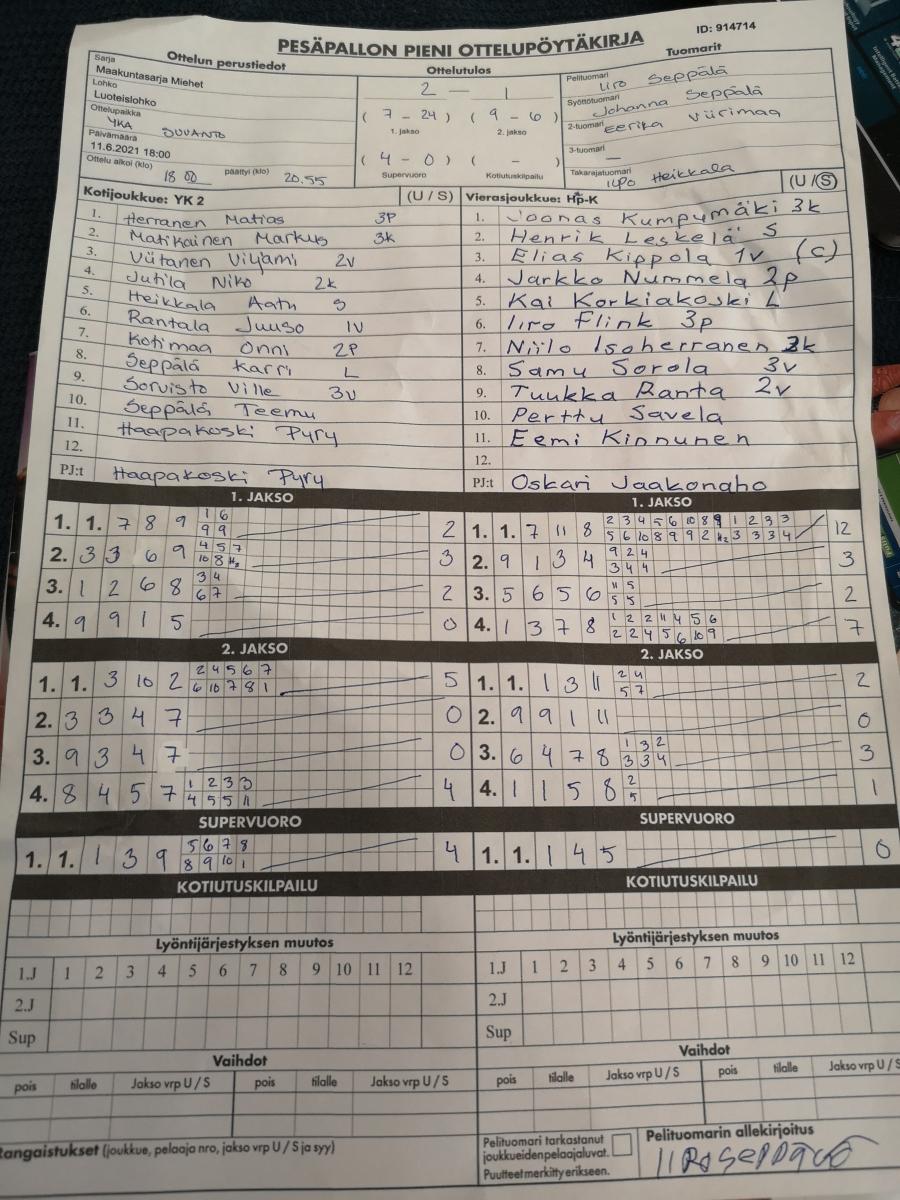 ID: 914714
PESÄPALLON PIENI OTTELUPÖYTÄKIRJA
Ottelun perustiedot
Sarja
Maakuntasarja Miehet
Lohko
Luoteislohko
Ottelupaikka
YKA SUVANTO
Päivämäärä
11.6.2021 18:00
Ottelu alkoi (klo) 18 00 päättyi (klo) 20.55
Ottelutulos
2 — 1
( 7 - 24 ) ( 9 - 6 )
1. jakso 2. jakso
( 4 - 0 ) ( - )
Supervuoro Kotiutuskilpailu
Tuomarit
Pelituomari Iiro Seppälä
Syöttötuomari Johanna Seppälä
2-tuomari Eerika Viirimaa
3-tuomari —
Takarajatuomari Ilpo Heikkala
Kotijoukkue: YK 2 (U / S)
1. Herranen Matias 3P
2. Matikainen Markus 3k
3. Viitanen Viljami 2v
4. Jutila Niko 2k
5. Heikkala Aatu S
6. Rantala Juuso 1v
7. Kotimaa Onni 2P
8. Seppälä Karri L
9. Sorvisto Ville 3v
10. Seppälä Teemu
11. Haapakoski Pyry
12.
PJ:t Haapakoski Pyry
Vierasjoukkue: HP-K (U / S)
1. Joonas Kumpumäki 3k
2. Henrik Leskelä S
3. Elias Kippola 1v (c)
4. Jarkko Nummela 2p
5. Kai Korkiakoski L
6. Iiro Flink 3p
7. Niilo Isoherranen 2k
8. Samu Sorola 3v
9. Tuukka Ranta 2v
10. Perttu Savela
11. Eemi Kinnunen
12.
PJ:t Oskari Jaakonaho
1. JAKSO
1. 1. 7 8 9 1 6 2
9 9
2. 3 3 6 9 4 5 7 3
10 8 H2
3. 1 2 6 8 3 4 2
6 7
4. 9 9 1 5 0
1. JAKSO
1. 1. 7 11 8 2 3 4 5 6 10 8 9 1 2 3 3 12
5 6 10 8 9 9 2 H2 3 3 3 4
2. 9 1 3 4 9 2 4 3
3 4 4
3. 5 6 5 6 11 5 2
5 5
4. 1 3 7 8 1 2 2 11 4 5 6 7
2 2 4 5 6 10 9
2. JAKSO
1. 1. 3 10 2 2 4 5 6 7 5
6 10 7 8 1
2. 3 3 4 7 0
3. 9 3 4 7 0
4. 8 4 5 7 1 2 3 3 4
4 5 5 11
2. JAKSO
1. 1. 1 3 11 2 4 2
5 7
2. 9 9 1 11 0
3. 6 4 7 8 1 3 2 3
3 3 4
4. 1 1 5 8 2 1
5
SUPERVUORO
1. 1. 1 3 9 5 6 7 8 4
8 9 10 1
SUPERVUORO
1. 1. 1 4 5 0
KOTIUTUSKILPAILU
KOTIUTUSKILPAILU
Lyöntijärjestyksen muutos
1.J 1 2 3 4 5 6 7 8 9 10 11 12
2.J
Sup
Lyöntijärjestyksen muutos
1.J 1 2 3 4 5 6 7 8 9 10 11 12
2.J
Sup
Vaihdot
pois tilalle Jakso vrp U / S pois tilalle Jakso vrp U / S
Vaihdot
pois tilalle Jakso vrp U / S pois tilalle Jakso vrp U / S
Rangaistukset (joukkue, pelaaja nro, jakso vrp U / S ja syy)
Pelituomari tarkastanut
joukkueiden pelaajaluvat.
Puutteet merkitty erikseen.
Pelituomarin allekirjoitus
Iiro Seppälä